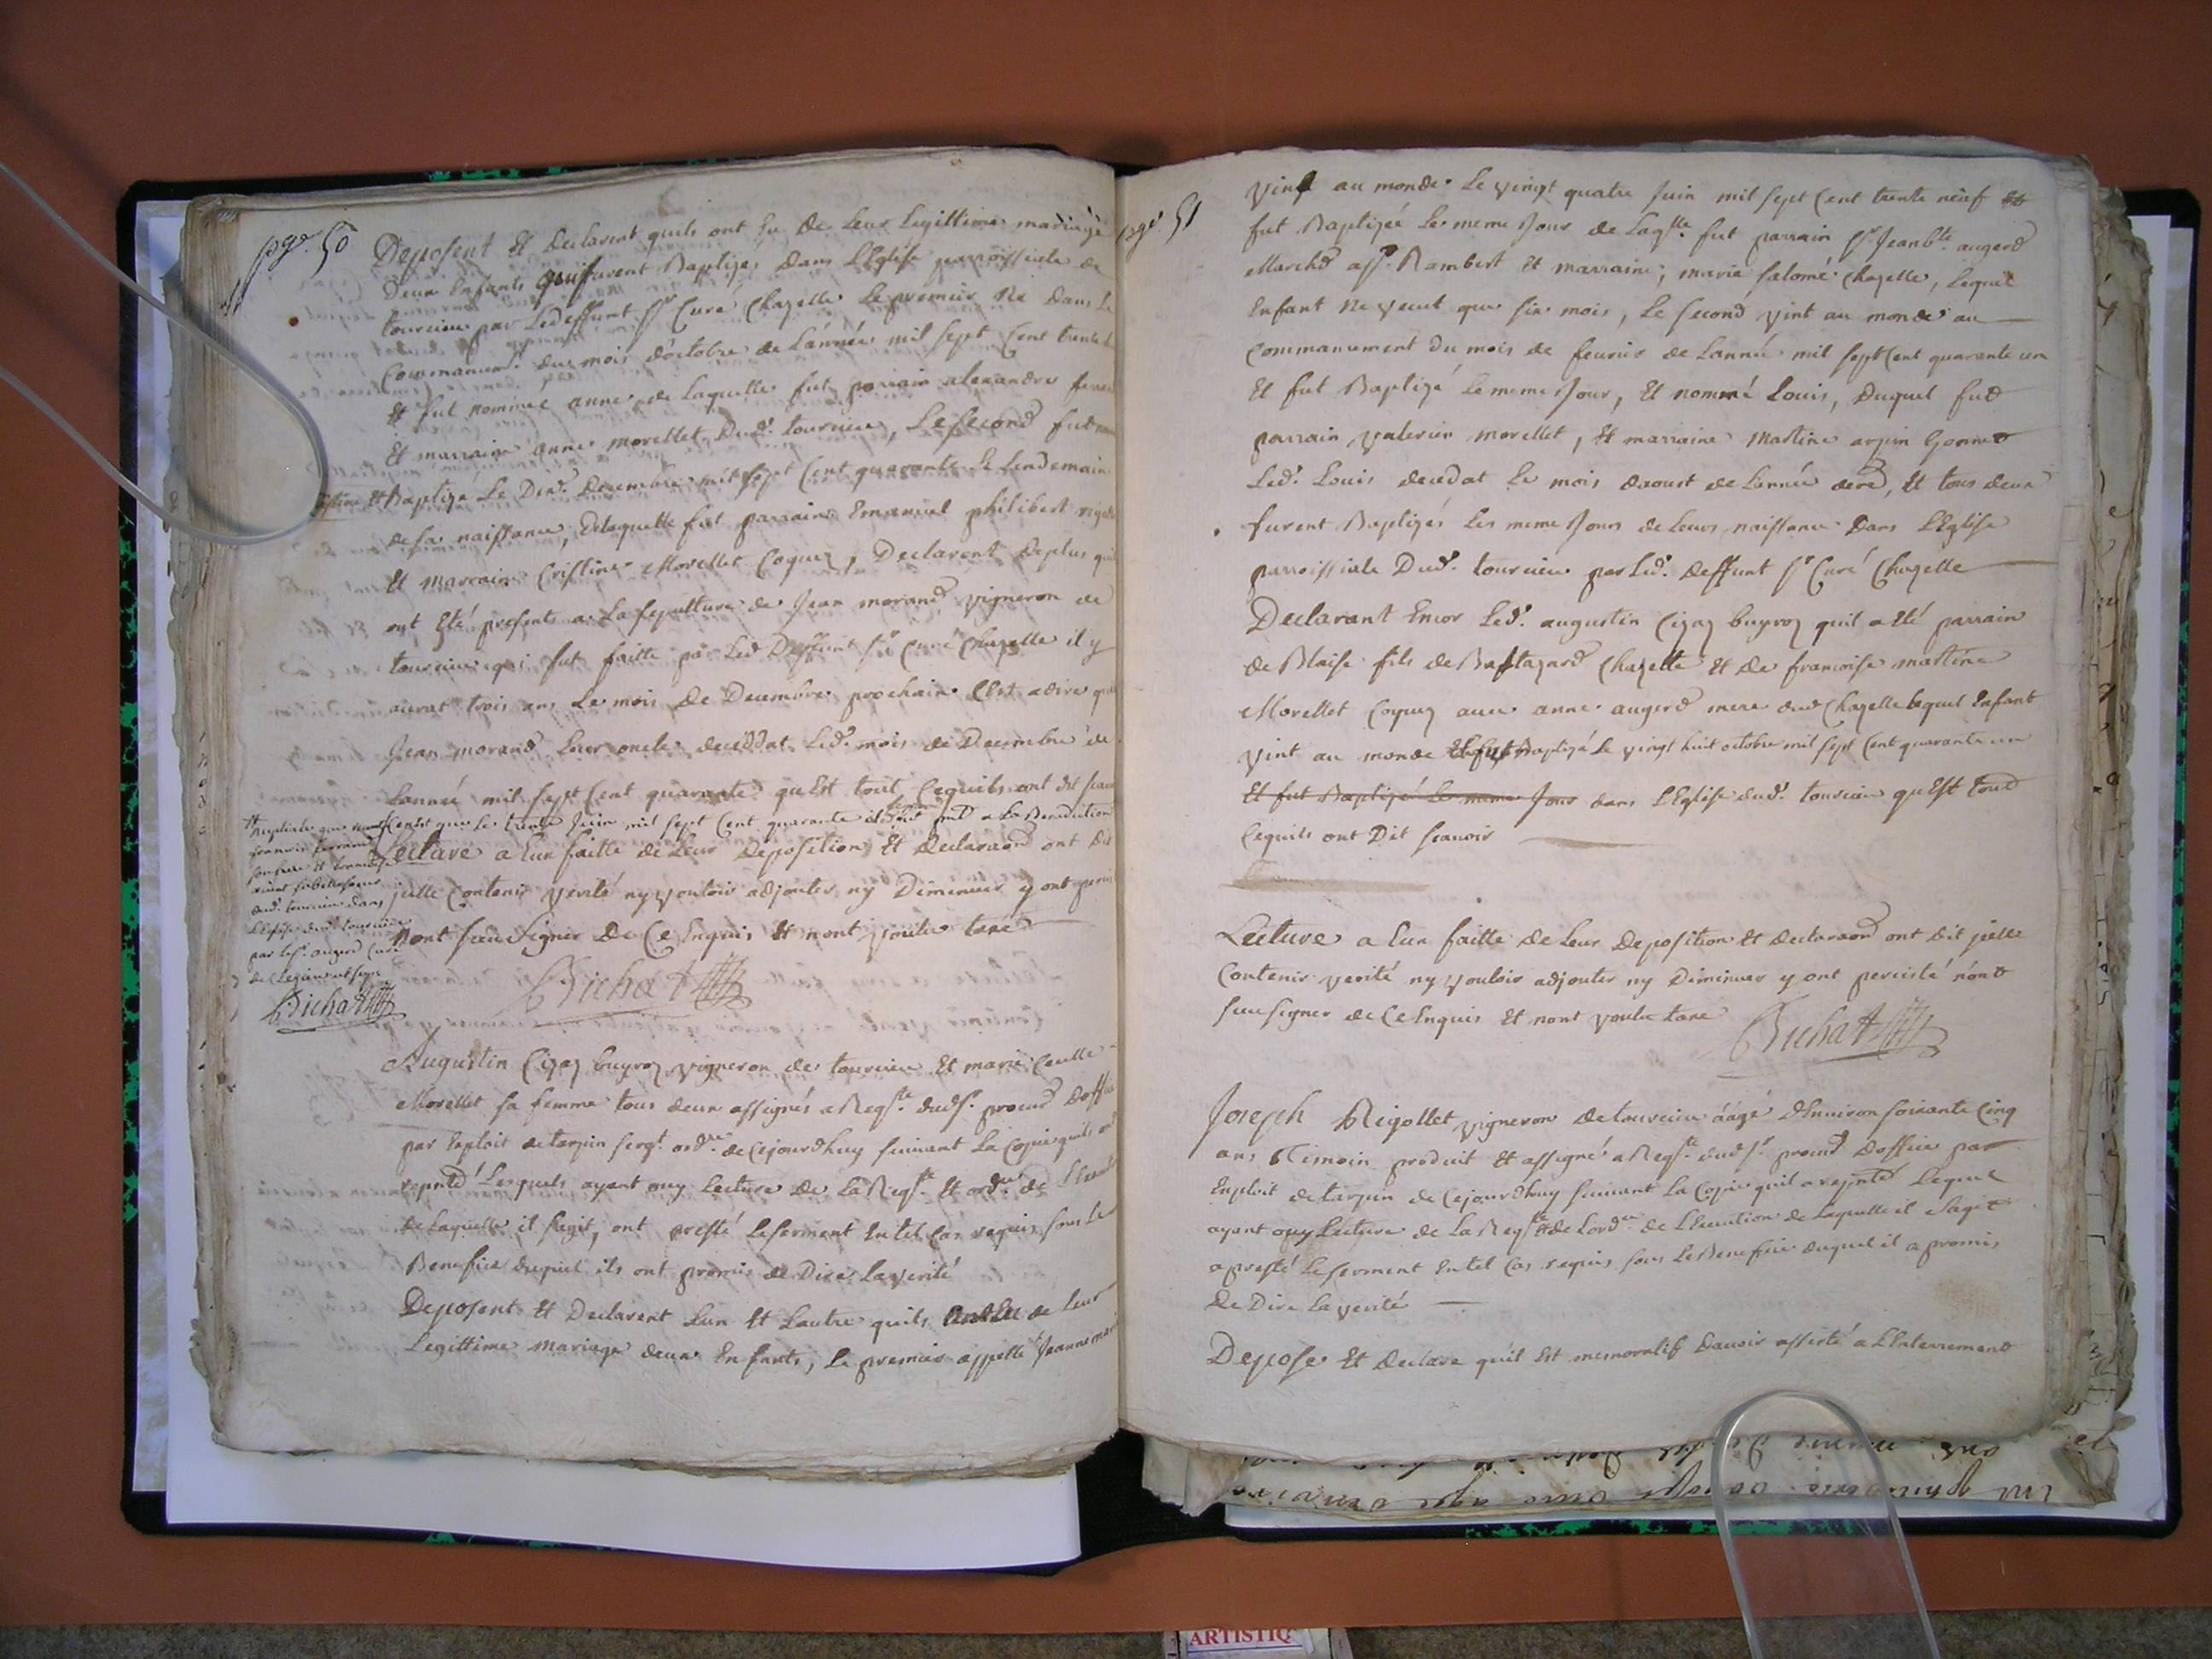 pge. 50
Deposent Et declarent quils ont Eu de Leur Legittime mariage
deux Enfants qui furent Baptizés dans LEglise parroissiale de
tourcieu par Ledeffunt Sr. Curé Chazelle Le premier Né dans Le
Commancemt. du mois doctobre de Lannée mil sept Cent trente
Et fut nommée anne de Laquelle fut parrain alexandre
Et marraine anne morellet Dud. tourcieu, Le second fut
Et Baptizé Le Decembre mil sept Cent quarante Le Lendemain
de sa naissance, De laquelle fut parrain Emanuel philibert
Et marraine Cristine Morellet Coquez, Declarent deplus
ont Eté presents a La sepulture de Jean morand vigneron de
tourcieu qui fut faitte par Led Deffunt Sr Curé Chazelle il y
aurat trois ans Le mois de Decembre prochain C'Est adire que
Jean morand Leur oncle deceddat Led. mois de Decembre de
Lannée mil sept Cent quarante quEst tout Cequils ont dit
Cenest que Le trente Juin mil sept Cent quarante a La Benediction
Nuptiale que
francois
son frere Et francoise
dud. tourcieu dans
LEglise dud tourcieu
par Le Sr. augerd Curé
de
Bichat
Lecture a Eux faitte de Leur Deposition Et Declaraon ont dit
jcelle Contenir verité ny vouloir adjouter ny Diminuer y ont
Nont sceu signer de Ce Enquis Et nont voulu taxe
Bichat
Augustin Cizaz buyroz vigneron de tourcieu Et marie
Morellet sa femme tous deux assignés a Reqte. dud Sr. procur Doffice
par Exploit de tarpin sergt. ordre. de Cejourdhuy suivant La Copie quils ont
reprnté Lesquels ayant ouy Lecture de La Reqte Et ordce de
de Laquelle il sagit, ont presté Le serment En tel Cas requis sous Le
Benefice duquel ils ont promis de Dire La verité
Deposent Et Declarent Lun Et Lautre quils ont Eu de Leur
Legittime mariage deux Enfants, Le premier appellé Jeanne
pge 51
vint au monde Le vingt quatre Juin mil sept Cent trente neuf Et
fut Baptizée Le meme Jour de Laqlle. fut parrain Sr Jean Bte augerd
Marchd a St. Rambert Et marraine, marie salomé Chazelle, Lequel
Enfant Ne vecut que six mois, Le second vint au monde au
Commancement du mois de fevrier de Lannée mil sept Cent quarante un
Et fut Baptizé Le meme Jour, Et nommé Louis, Duquel fut
parrain valerien morellet, Et marraine Martine arpin Gonnet
Led. Louis decedat Le mois daoust de Lannée dere, Et tous deux
furent Baptizés Les meme Jours de Leurs naissance Dans LEglise
parroissiale Dud. tourcieu par Led. Deffunt Sr Curé Chazelle
Declarant Encor Led. augustin Cizaz buyroz quil a Eté parrain
de Blaise fils de Baltazard Chazelle Et de francoise martine
Morellet Coquez avec anne augerd mere dud Chazelle Lequel Enfant
vint au monde Et fut Baptizé Le vingt huit octobre mil sept Cent quarante un
Et fut Baptizé Le meme Jour dans LEglise dud. tourcieu quEst tout
Cequils ont Dit scavoir
Lecture a Eux faitte de Leur Deposition Et declaraon ont dit jcelle
Contenir verité ny vouloir adjouter ny Diminuer y ont percisté nont
sceu signer de Ce Enquis Et nont voulu taxe
Bichat
Joseph Rigollet vigneron de tourcieu áagé dEnviron soixante Cinq
ans temoin produit Et assigné a Reqte. dud Sr. procur Doffice par
Exploit de tarpin de Cejourdhuy suivant La Copie quil a reprnté Lequel
ayant ouy Lecture de La Reqte Et de Lordce. de LExecution de Laquelle il sagit
a presté Le serment En tel Cas requis sous Le Benefice duquel il a promis
De Dire La verité
Depose Et declare quil Est memoratif davoir assisté a LEnterrement
ARTISTIQ